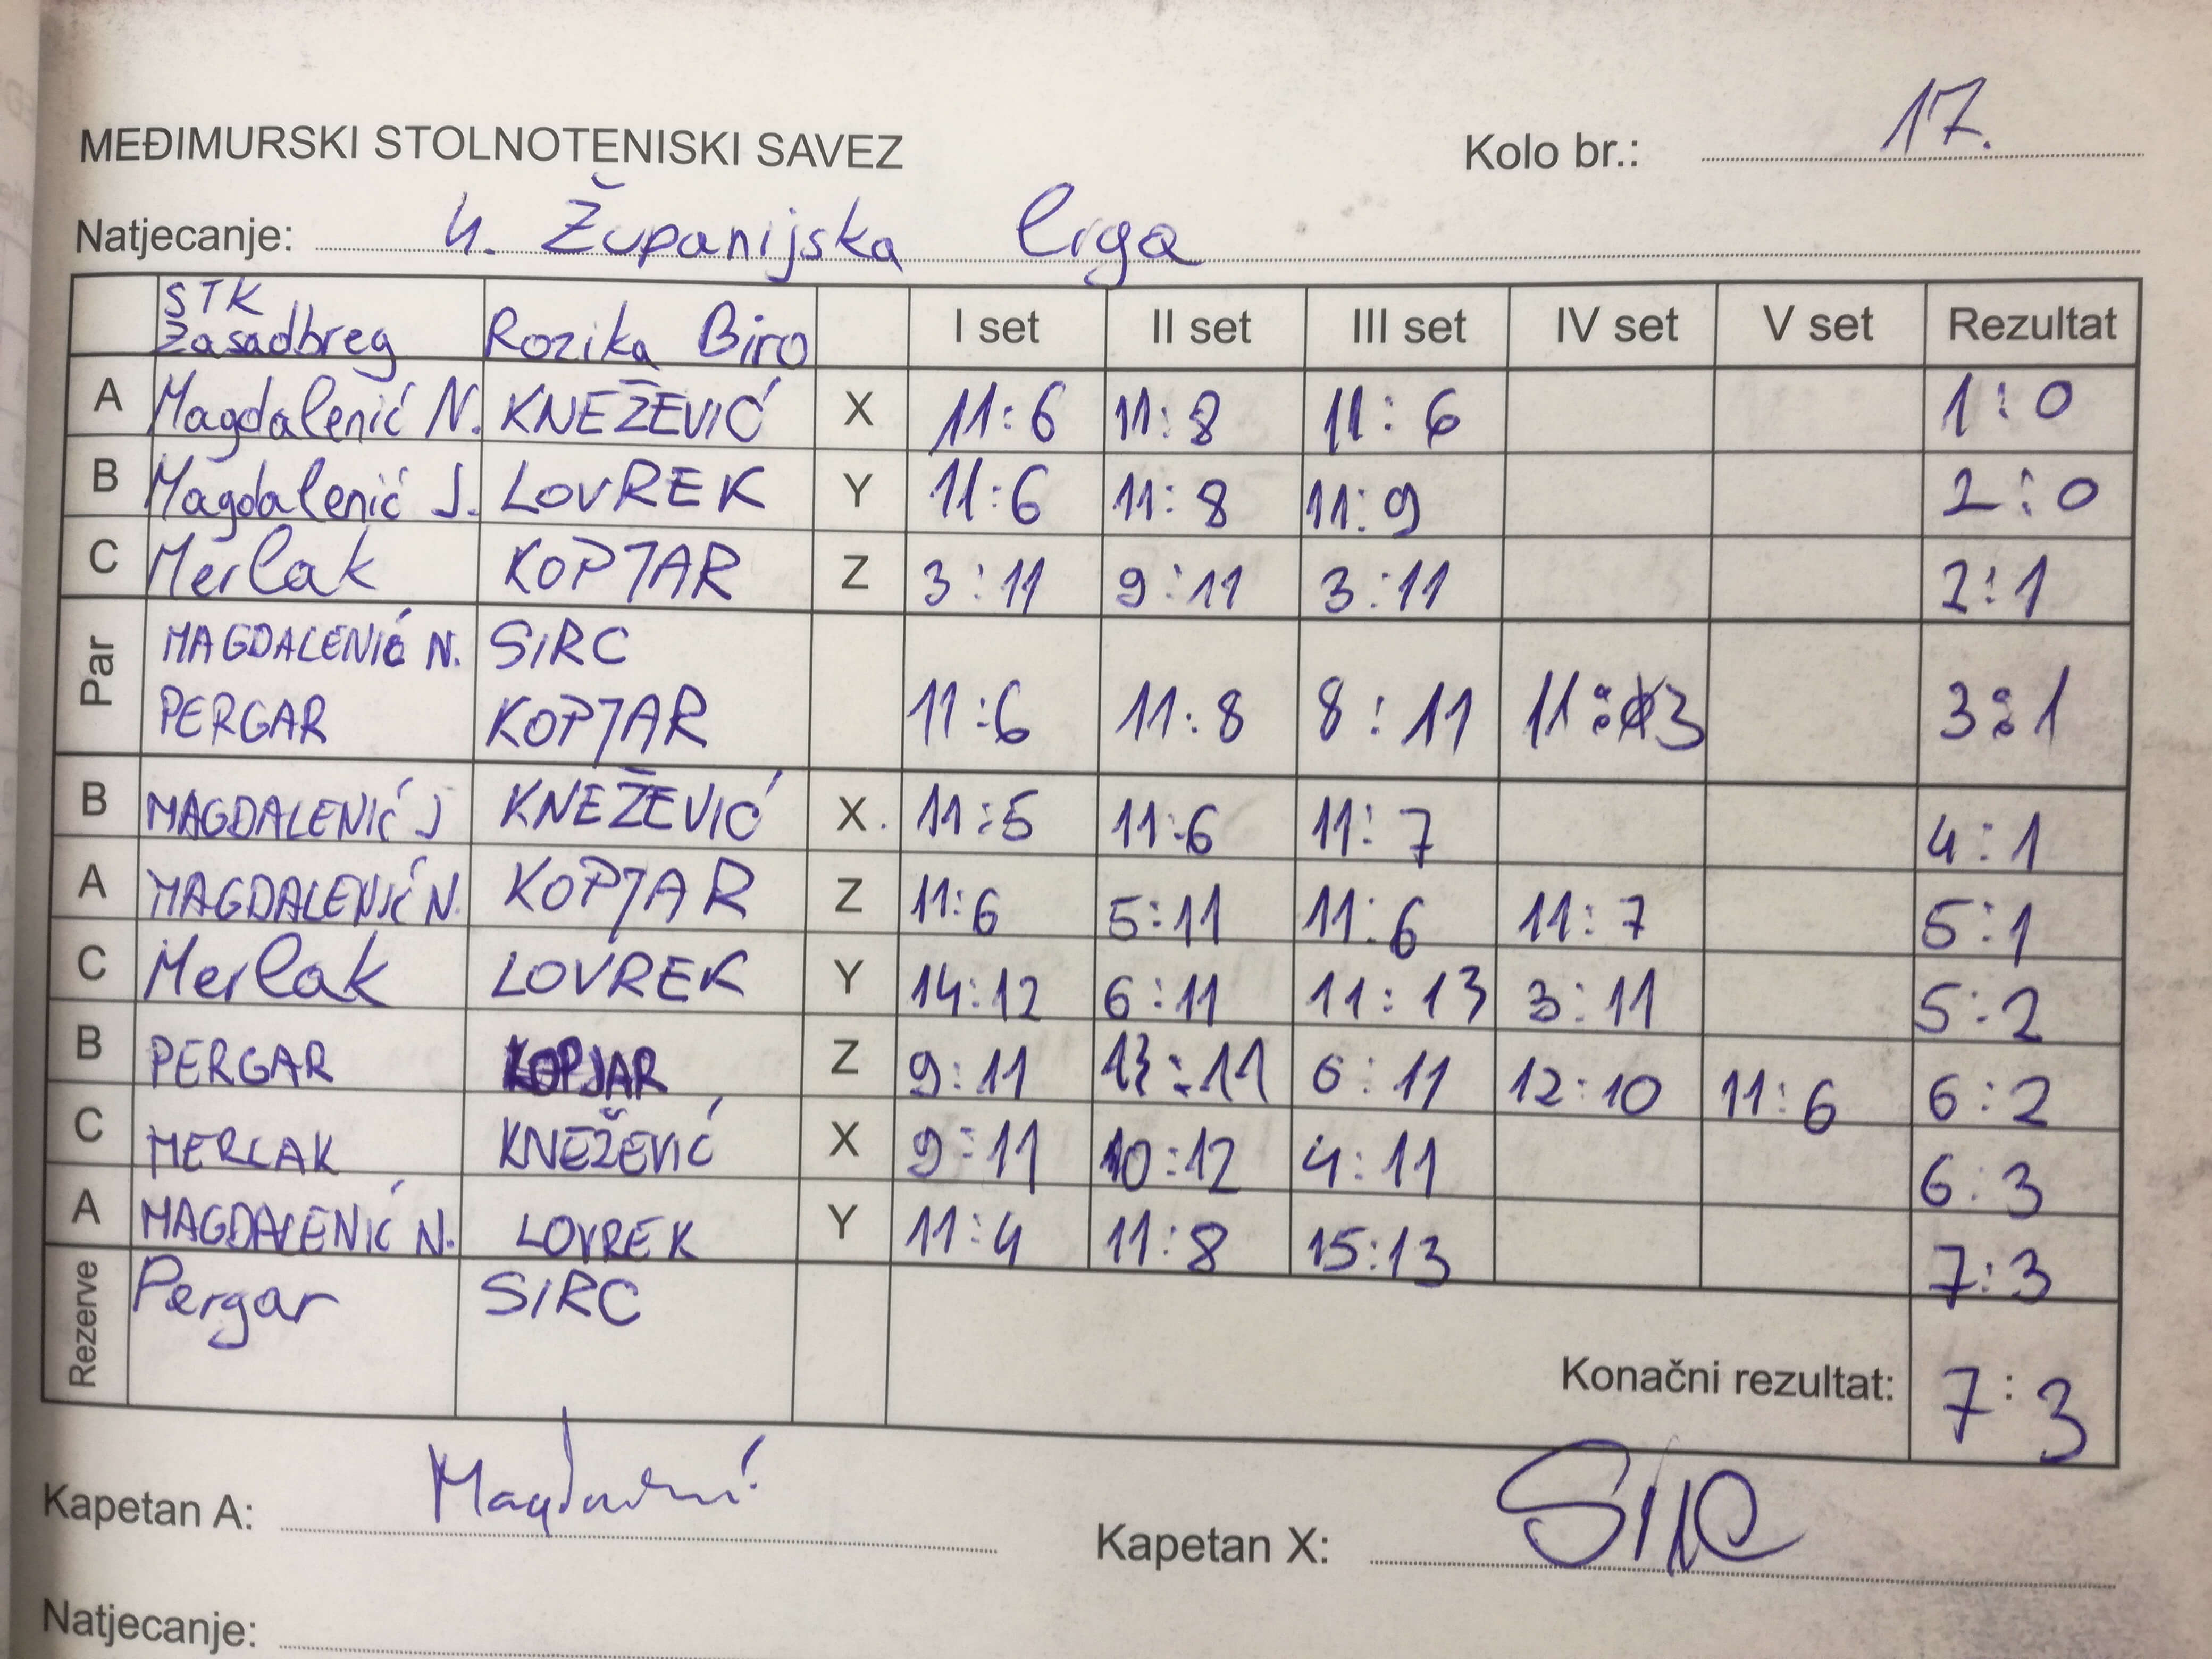 MEĐIMURSKI STOLNOTENISKI SAVEZ Kolo br.: 17.
Natjecanje: 4. Županijska liga
STK Zasadbreg Rozika Biro I set II set III set IV set V set Rezultat
A Magdalenić N. KNEŽEVIĆ X 11:6 11:8 11:6 1:0
B Magdalenić J. LOVREK Y 11:6 11:8 11:9 2:0
C Merlak KOPJAR Z 3:11 9:11 3:11 2:1
Par MAGDALENIĆ N. SIRC
PERGAR KOPJAR 11:6 11:8 8:11 11:3 3:1
B MAGDALENIĆ J KNEŽEVIĆ X. 11:5 11:6 11:7 4:1
A MAGDALENIĆ N. KOPJAR Z 11:6 5:11 11:6 11:7 5:1
C Merlak LOVREK Y 14:12 6:11 11:13 3:11 5:2
B PERGAR KOPJAR Z 9:11 13:11 6:11 12:10 11:6 6:2
C MERLAK KNEŽEVIĆ X 9:11 10:12 4:11 6:3
A MAGDALENIĆ N. LOVREK Y 11:4 11:8 15:13 7:3
Rezerve Pergar SIRC
Konačni rezultat: 7:3
Kapetan A: Kapetan X: SIRC
Natjecanje: